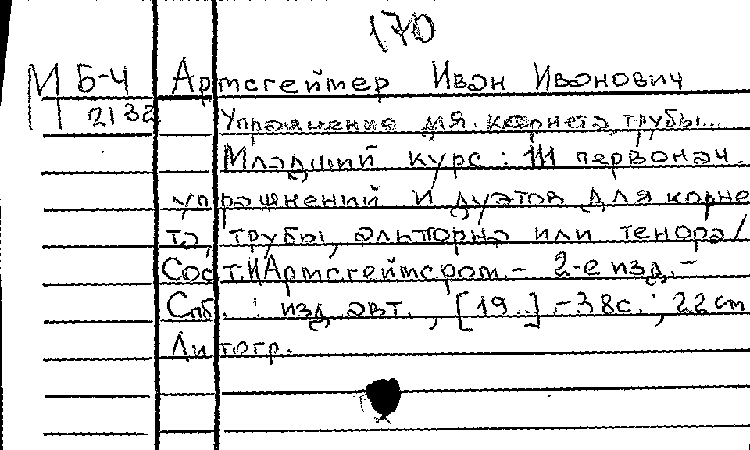 170
М Б-4 Артсгеймер Иван Иванович
2132 Упражнения для корнета, трубы...
Младший курс: 111 первонач.
упражнений и дуэтов для корне
та, трубы, альтгорна или тенора/
Сост. И Артсгеймером. - 2-е изд. -
Спб. : изд. авт., [19..] - 38с. ; 22 cm
Литогр.